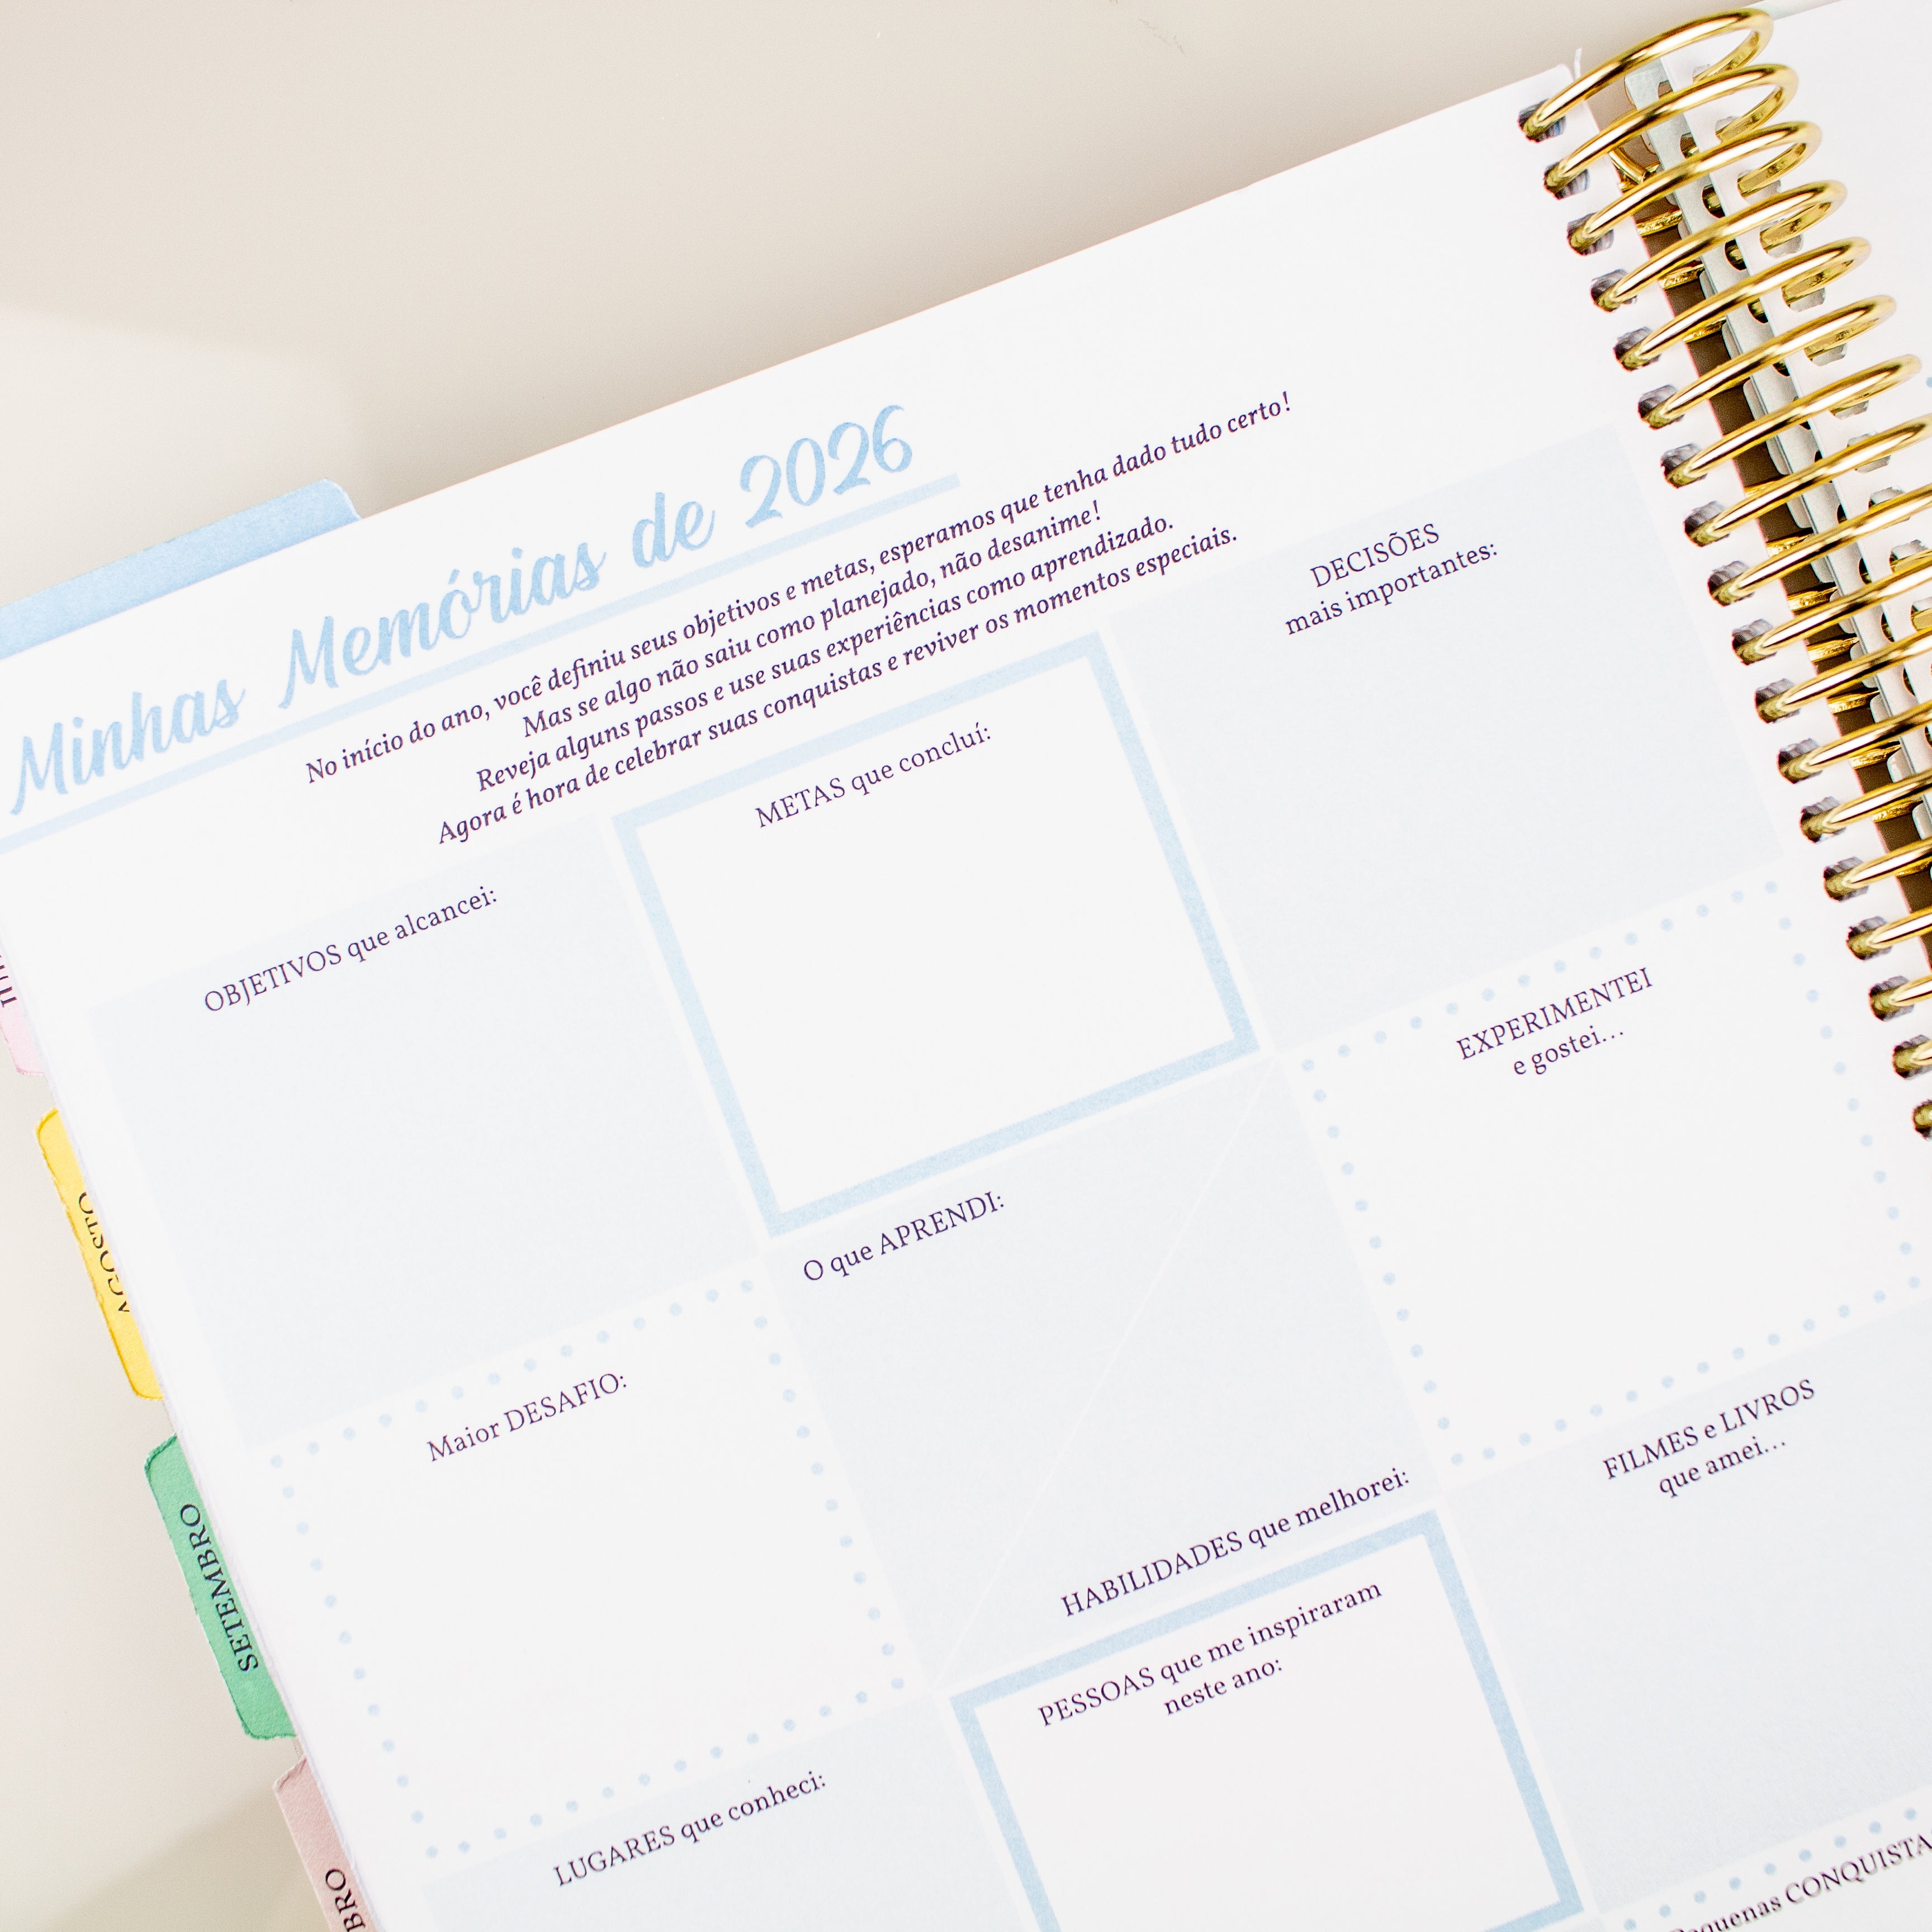 Minhas Memórias de 2026
No início do ano, você definiu seus objetivos e metas, esperamos que tenha dado tudo certo!
Mas se algo não saiu como planejado, não desanime!
Reveja alguns passos e use suas experiências como aprendizado.
Agora é hora de celebrar suas conquistas e reviver os momentos especiais.
OBJETIVOS que alcancei:
METAS que concluí:
DECISÕES
mais importantes:
Maior DESAFIO:
O que APRENDI:
HABILIDADES que melhorei:
EXPERIMENTEI
e gostei...
LUGARES que conheci:
PESSOAS que me inspiraram
neste ano:
FILMES e LIVROS
que amei...
CONQUISTA
AGOSTO
SETEMBRO
BRO